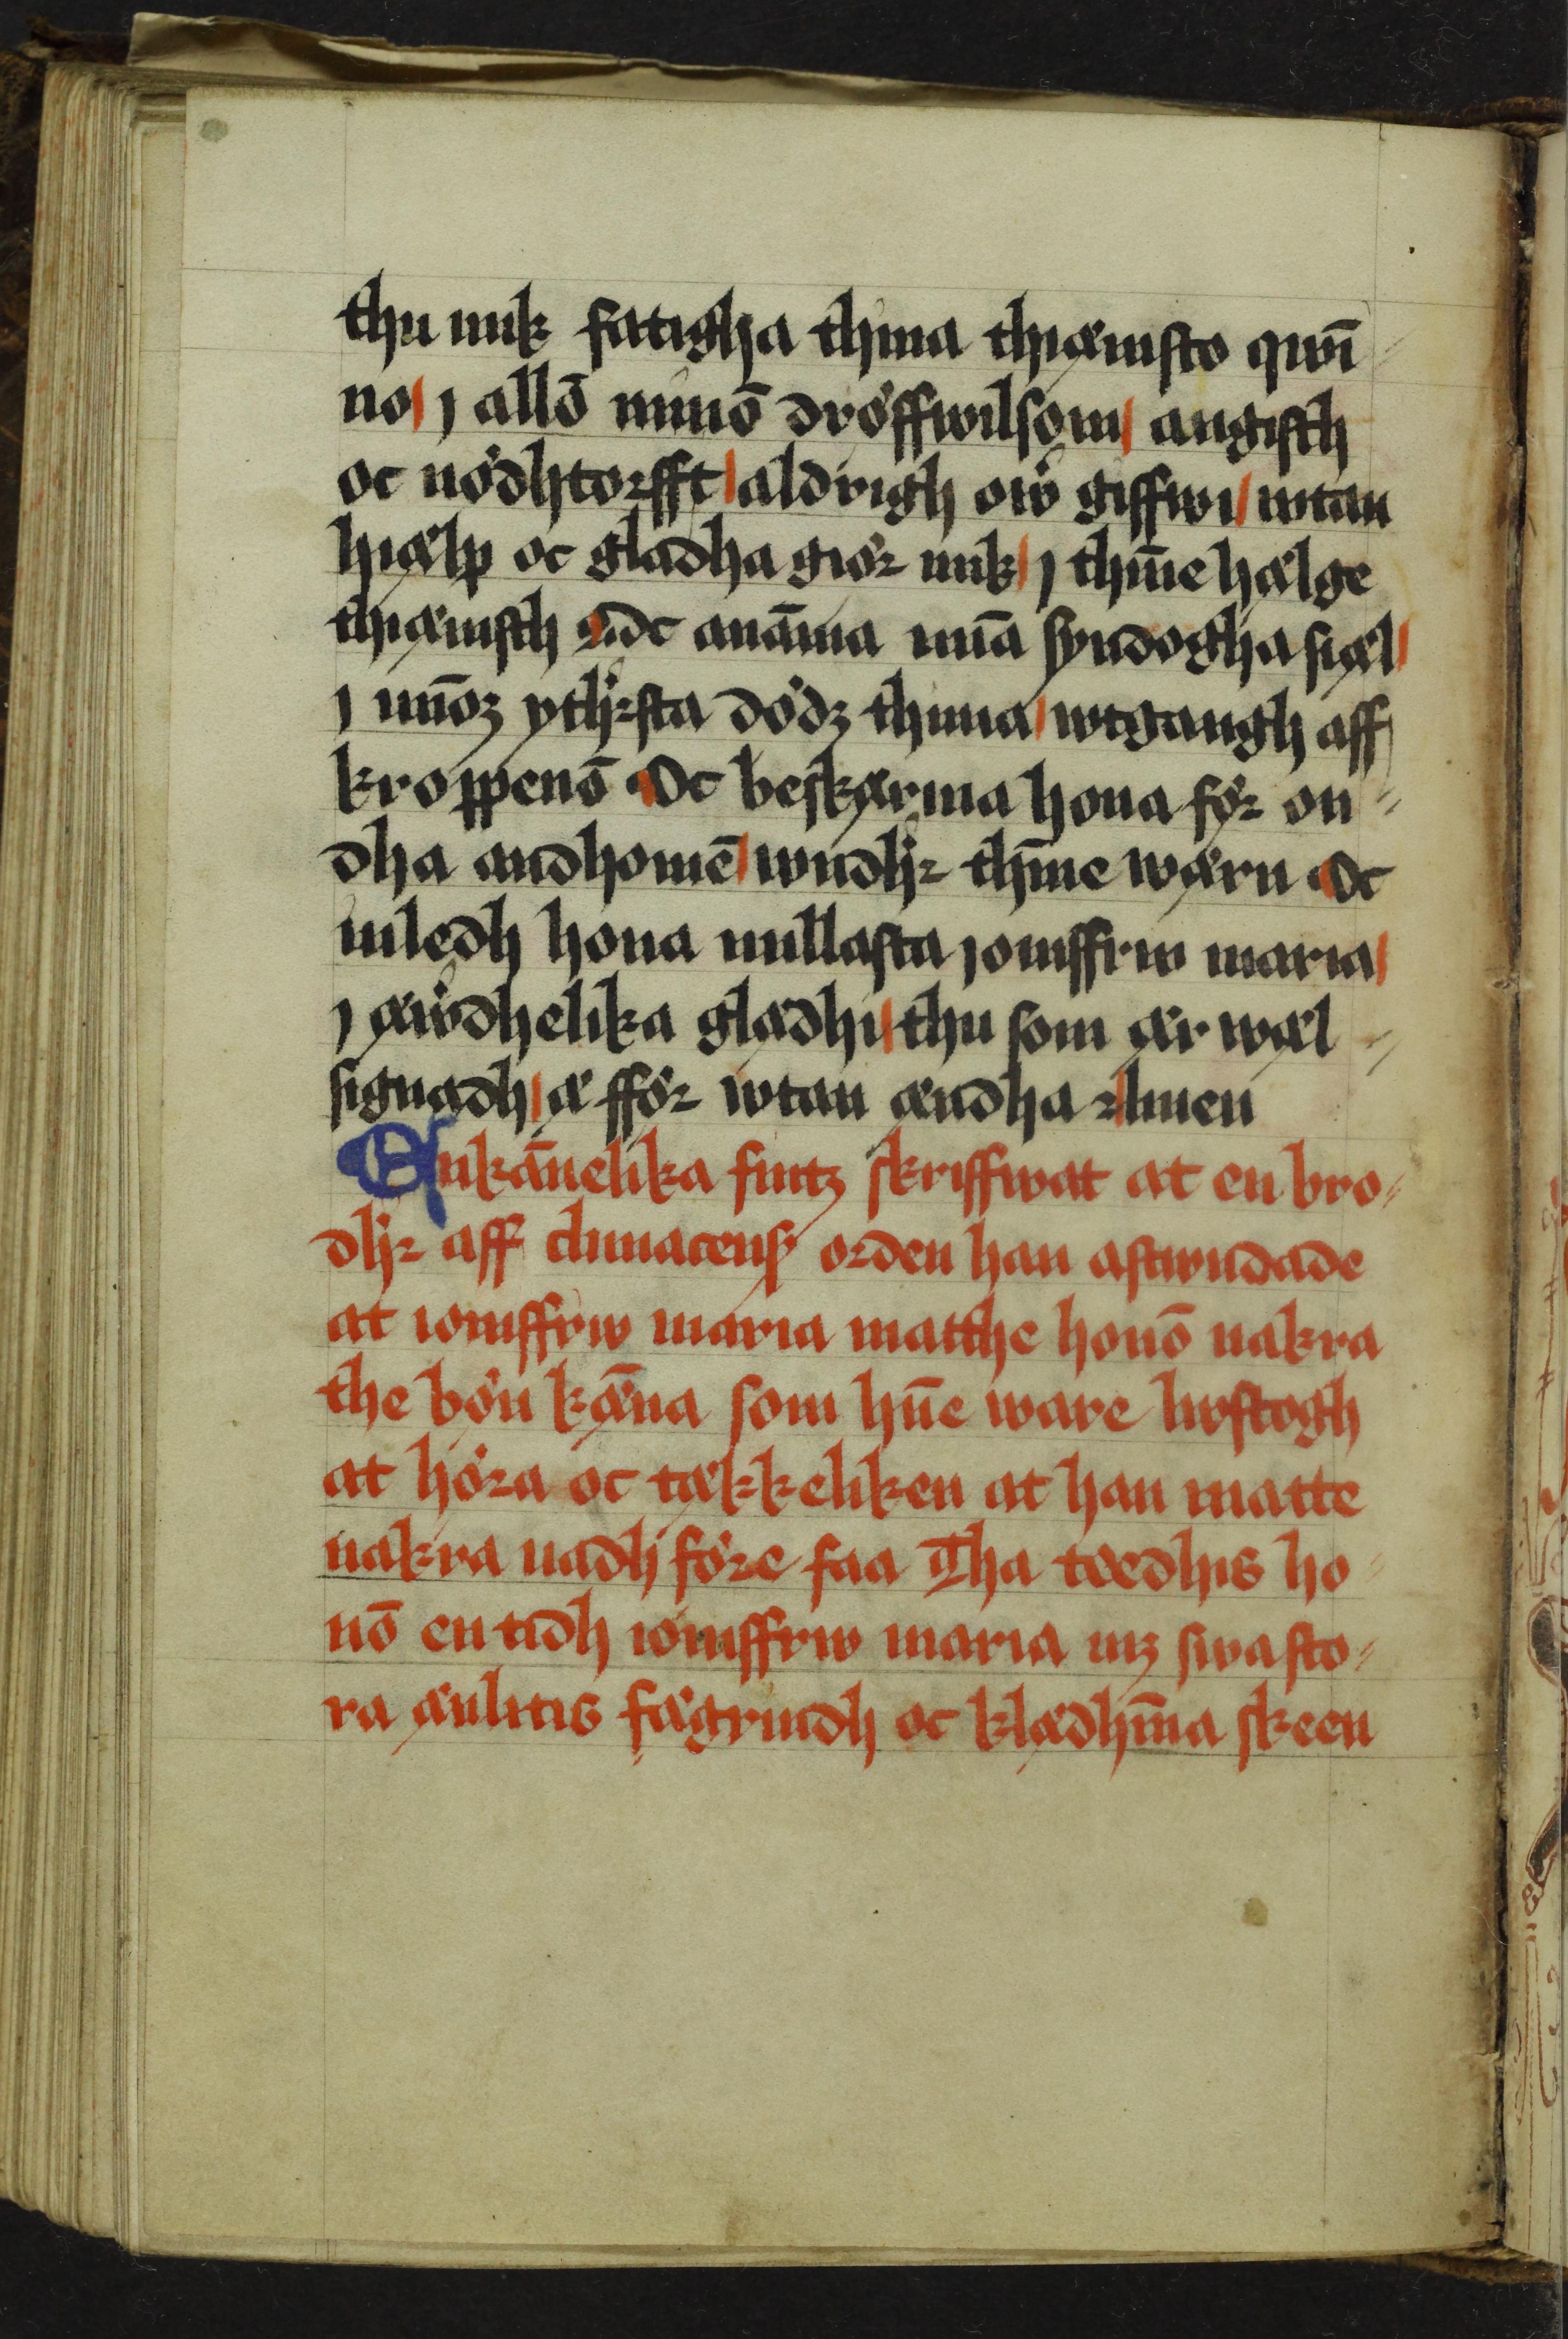 thu mik fatigha thina thiænisto qwī⸗
no j allō minō dröffwilsom angisth
oc nödhtorfft aldrigh owͤ giffwi wtan
hiælp oc gladha giör mik j thīne hælge
thiænisth Oc anāma mīa syndogha siæl
j mīoꝫ ythꝛsta dödꝫ thima wtgangh aff
kroppenō Oc beskærma hona för on⸗
dha andhomē wndhꝛ thīne wærn Oc
inledh hona millasta jomffrw maria
j æwͤdhelika glædhi thu som ær wæl⸗
signadh æ fför wtan ændha Amen
Enkānelika fintꝫ skriffwat at en bro⸗
dhꝛ aff clunacensꝭ orden han astwndade
at iomffrw maria matthe honō nakra
the bön kæ̅na som hēne ware lwstogh
at höra oc tækkeliken at han matte
nakra nadh före faa Tha tedhis ho⸗
nō en tidh iomffrw maria mꝫ swa sto⸗
ra ænlitis fægrindh oc klædhīna skeen